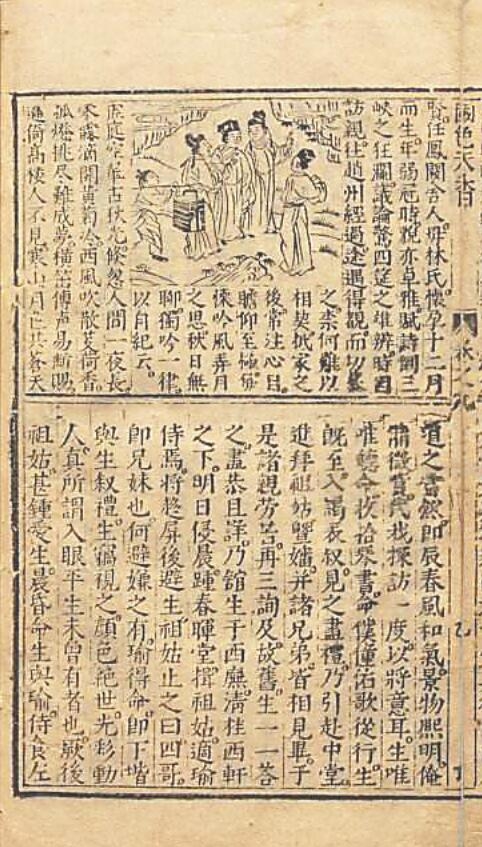 國色天香
卷之九
賢任鳳閣舍人母林氏懷孕十二月
而生年弱冠時貌亦卓雅賦詩倒三
峽之狂瀾議論驚四筵之雄辨時因
訪親往趙州經過途遇得覩而切慕
之柰何難以
相契抵家之
後常注心目
瞻仰至極每
吟風弄月
之思秋日無
聊獨吟一律
以自紀云
虛庭古秋光倏忽人間一夜長
寒露滴開黃菊冷西風吹散芰荷香
孤燈挑尽難成夢橫笛傳声易斷腸
遍倚高樓人不見寒山月色共蒼天
道之當然即辰春風和氣景物熙明俺
微代我探訪一度以將意耳生唯
唯聽命收拾琴書命僕僮佑歌從行生
既至入謁表叔見之盡禮乃引赴中堂
進拜祖姑暨嬸并諸兄弟皆相見畢于
是諸親勞苦再三詢及故舊生一一答
之盡恭且詳乃館生于西廡清桂西軒
之下明日侵晨踵春暉堂揖祖姑適瑜
侍焉將趍屏後避生祖姑止之曰四哥
即兄妹也何避嫌之有瑜得命即下堦
與生叙禮生竊視之顔色絶世光彩動
人真所謂入眼平生未曾有者也厥後
祖姑甚鍾愛生晨昏命生與瑜侍食左